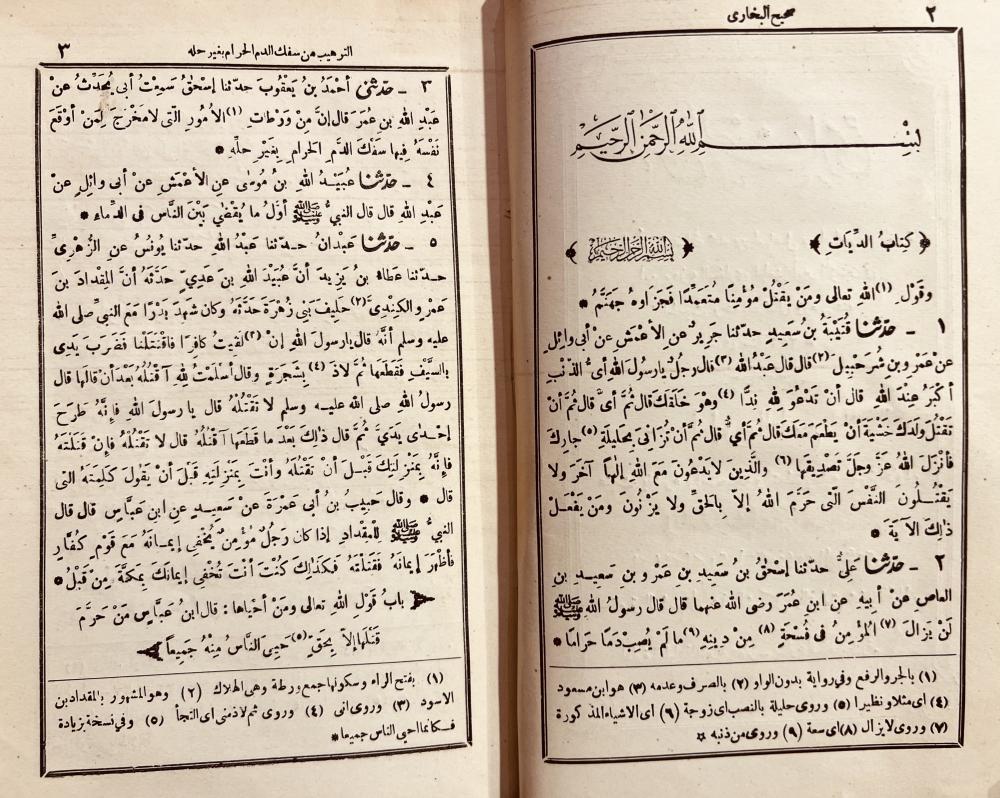 ٢
صحيح البخارى
بسم الله الرحمن الرحيم
﴿ كتابُ الدِّيات ﴾ ﴿ بسم الله الرحمن الرحيم ﴾
وقَوْلِ (١) اللهِ تعالى ومَنْ يَقْتُلْ مُؤْمِنًا مُتَعَمِّدًا فَجَزَاؤهُ جَهَنَّمُ *
١ ـ حَدَّثنا قُتَيْبَةُ بنُ سَعِيدٍ حدّثنا جَرِيرٌ عنِ الأعْمَشِ عنْ أبى وائِلٍ
عنْ عَمْرِو بنِ شُرَحْبِيلَ (٢) قال قال عَبْدُ اللهِ (٣) قال رجُلٌ يا رسولَ اللهِ أىُّ الذَّنْبِ
أكْبَرُ عِنْدَ اللهِ قال أنْ تَدْعُوَ لِلهِ نِدًّا (٤) وهْوَ خَلَقَكَ قال ثُمَّ أىٌّ قال ثُمَّ أنْ
تَقْتُلَ ولَدَكَ خَشْيَةَ أنْ يَطْعَمَ مَعَكَ قال ثُمَّ أىٌّ قال ثُمَّ أنْ تُزَانِىَ بِحَلِيلَةِ (٥) جارِكَ
فأنْزَلَ اللهُ عَزَّ وجَلَّ تَصْدِيقَها (٦) والَّذِينَ لا يَدْعُونَ مَعَ اللهِ إلٰهًا آخَرَ ولا
يَقْتُلُونَ النَّفْسَ الَّتى حَرَّمَ اللهُ إلاَّ بِالحَقِّ ولا يَزْنُونَ ومَنْ يَفْعَلْ
ذٰلِكَ الآيَةَ *
٢ ـ حَدَّثنا عَلِىٌّ حدّثنا إسْحٰقُ بنُ سَعِيدِ بنِ عَمْرِو بنِ سَعِيدِ بنِ
العاصِ عنْ أبِيهِ عنِ ابنِ عُمَرَ رضى الله عنهما قال قال رسولُ اللهِ ﷺ
لَنْ يَزالَ (٧) المُؤْمِنُ فى فُسْحَةٍ (٨) مِنْ دِينِهِ (٩) ما لَمْ يُصِبْ دَمًا حَرامًا *
(١) بالجر والرفع وفى رواية بدون الواو (٢) بالصرف وعدمه (٣) هو ابن مسعود
(٤) اى مثلا ونظيرا (٥) وروى حليلة بالنصب اى زوجة (٦) اى الاشياء المذكورة
(٧) وروى لا يزال (٨) اى سعة (٩) وروى من ذنبه *
٣
الترهيب من سفك الدم الحرام بغير حله
٣ ـ حَدَّثنى أحْمَدُ بنُ يَعْقُوبَ حدّثنا إسْحٰقُ سَمِعْتُ أبى يُحَدِّثُ عنْ
عَبْدِ اللهِ بنِ عُمَرَ قال إنَّ مِنْ ورَطاتِ (١) الأُمُورِ الَّتى لا مَخْرَجَ لِمَنْ أوْقَعَ
نَفْسَهُ فِيها سَفْكَ الدَّمِ الحرامِ بِغَيْرِ حِلِّهِ *
٤ ـ حَدَّثنا عُبَيْدُ اللهِ بنُ مُوسٰى عنِ الأعْمَشِ عنْ أبى وائِلٍ عنْ
عَبْدِ اللهِ قال قال النبىُّ ﷺ أوَّلُ ما يُقْضٰى بَيْنَ النَّاسِ فى الدِّماءِ *
٥ ـ حَدَّثنا عَبْدانُ حدّثنا عَبْدُ اللهِ حدّثنا يُونُسُ عنِ الزُّهْرِىِّ
حدّثنا عَطاءُ بنُ يَزِيدَ أنَّ عُبَيْدَ اللهِ بنَ عَدِىٍّ حَدَّثَهُ أنَّ المِقْدادَ بنَ
عَمْرٍو الكِنْدِىَّ (٢) حَلِيفَ بَنِى زُهْرَةَ حَدَّثَهُ وكان شَهِدَ بَدْرًا مَعَ النبىِّ صلى الله
عليه وسلم أنَّهُ قال يا رسولَ اللهِ إنْ (٣) لَقِيتُ كافِرًا فاقْتَتَلْنا فَضَرَبَ يَدِى
بالسَّيْفِ فَقَطَعَها ثُمَّ لاذَ (٤) بِشَجَرَةٍ وقال أسْلَمْتُ لِلهِ آقْتُلُهُ بَعْدَ أنْ قالَها قال
رسولُ اللهِ صلى الله عليه وسلم لا تَقْتُلْهُ قال يا رسولَ اللهِ فإنَّهُ طَرَحَ
إحْدٰى يَدَىَّ ثُمَّ قال ذٰلِكَ بَعْدَ ما قَطَعَها آقْتُلُهُ قال لا تَقْتُلْهُ فإنْ قَتَلْتَهُ
فإنَّهُ بِمَنْزِلَتِكَ قَبْلَ أنْ تَقْتُلَهُ وأنْتَ بِمَنْزِلَتِهِ قَبْلَ أنْ يَقُولَ كَلِمَتَهُ التى
قال * وقال حَبِيبُ بنُ أبى عَمْرَةَ عنْ سَعِيدٍ عنِ ابنِ عبَّاسٍ قال قال
النبىُّ ﷺ لِلْمِقْدادِ إذا كان رَجُلٌ مُؤْمِنٌ يُخْفِى إيمانَهُ مَعَ قَوْمٍ كُفَّارٍ
فأظْهَرَ إيمانَهُ فَقَتَلْتَهُ فَكَذٰلِكَ كُنْتَ أنْتَ تُخْفِى إيمانَكَ بِمَكَّةَ مِنْ قَبْلُ *
﴿ بابُ قَوْلِ اللهِ تعالى ومَنْ أحْياها : قال ابنُ عَبَّاسٍ مَنْ حَرَّمَ
قَتْلَها إلاَّ بِحَقٍّ (٥) حَيِىَ النَّاسُ مِنْهُ جَمِيعًا ﴾
(١) بفتح الراء وسكونها جمع ورطة وهى الهلاك (٢) وهو المشهور بالمقداد بن
الاسود (٣) وروى انى (٤) وروى ثم لاذ منى اى التجأ (٥) وفى نسخة بزيادة
فكأنما احيى الناس جميعا *